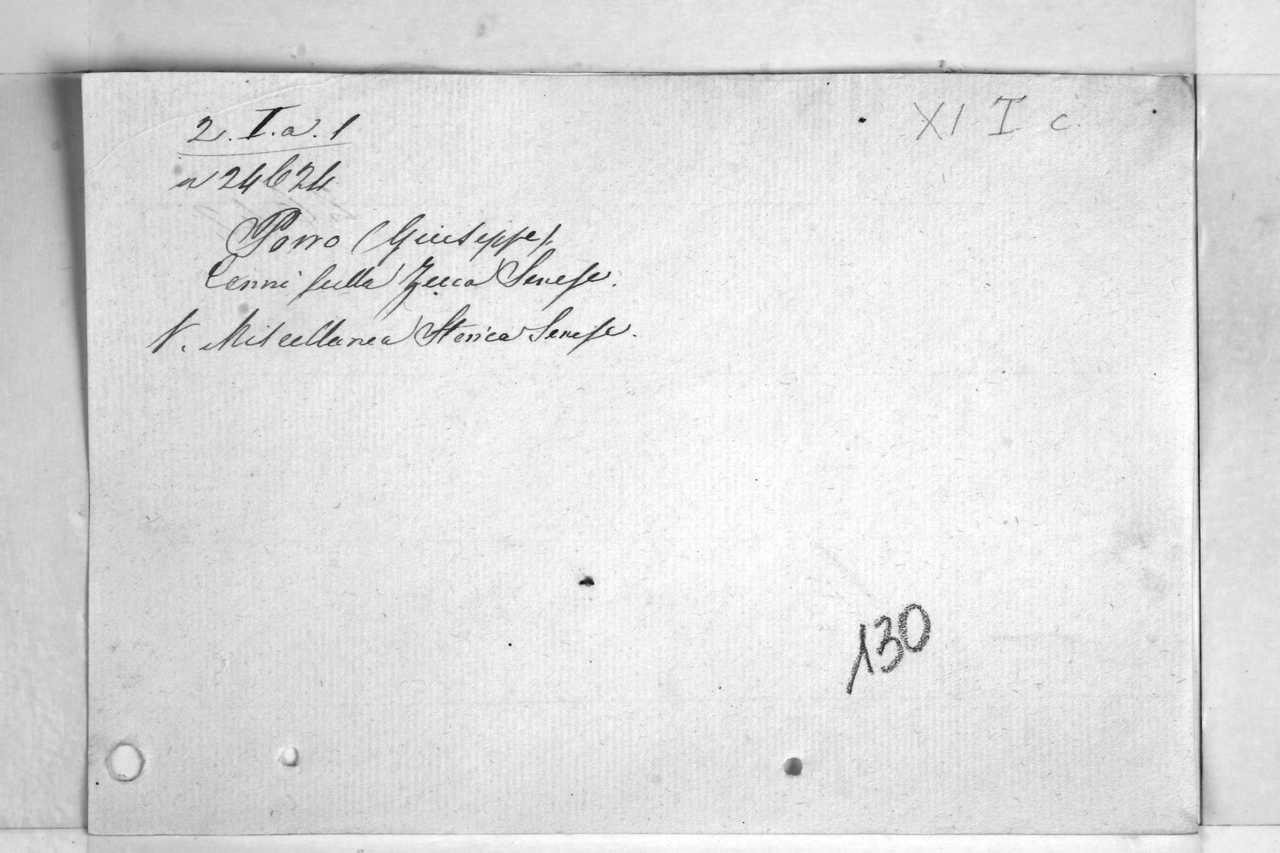 2. I. a. 1
XI I c.
a 24 b 24
Porro (Giuseppe).
Cenni sulla Zecca Senese.
V. Miscellanea Storica Senese.
130